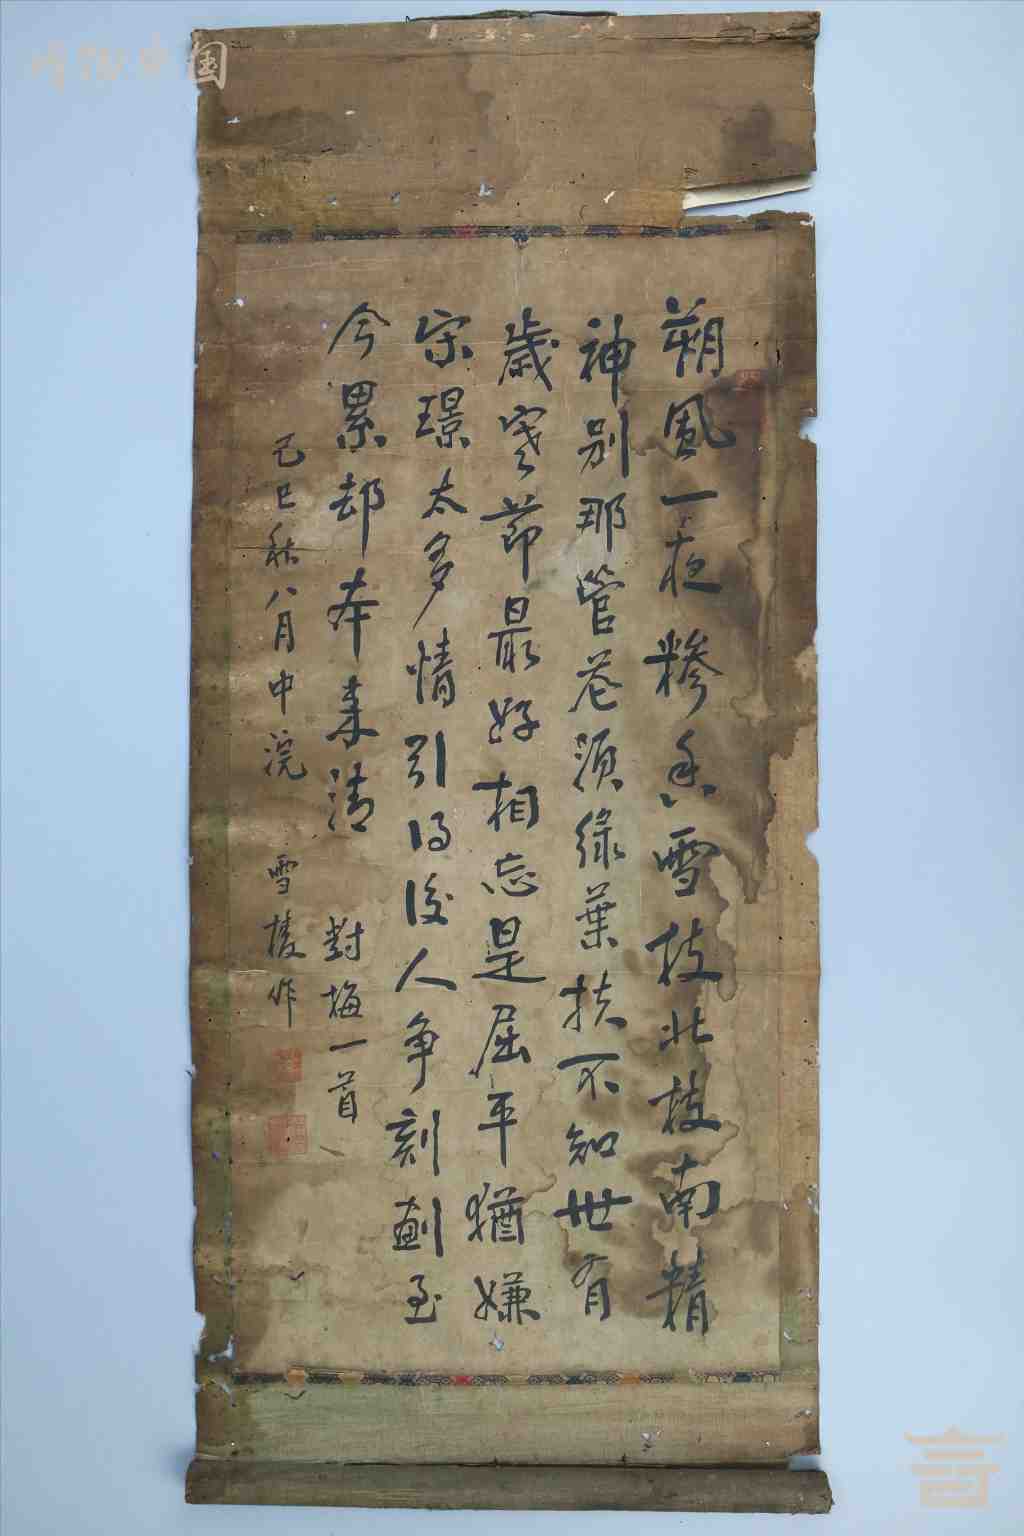 朔風一夜糝香雪枝北枝南精
神別那管花須綠葉扶不知世有
歲寒節最好相忘是屈平猶嫌
宋璟太多情引得後人爭刻劃至
今累却本來清 對梅一首
己巳秋八月中浣 雪棱作